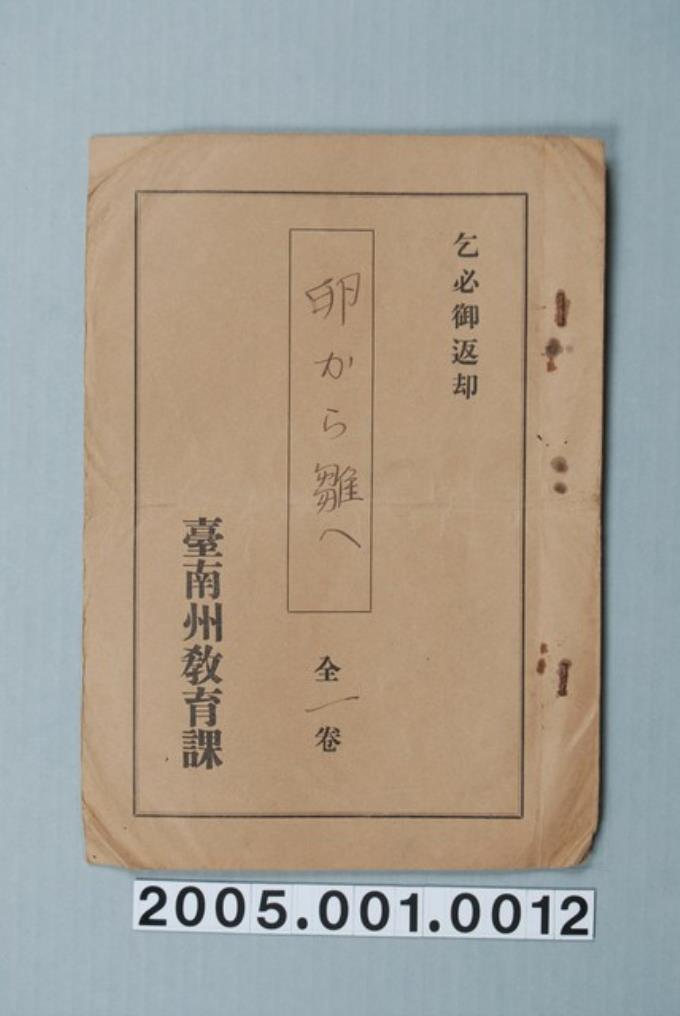 乞必御返却
卵から雛へ
全一卷
臺南州教育課
2005.001.0012